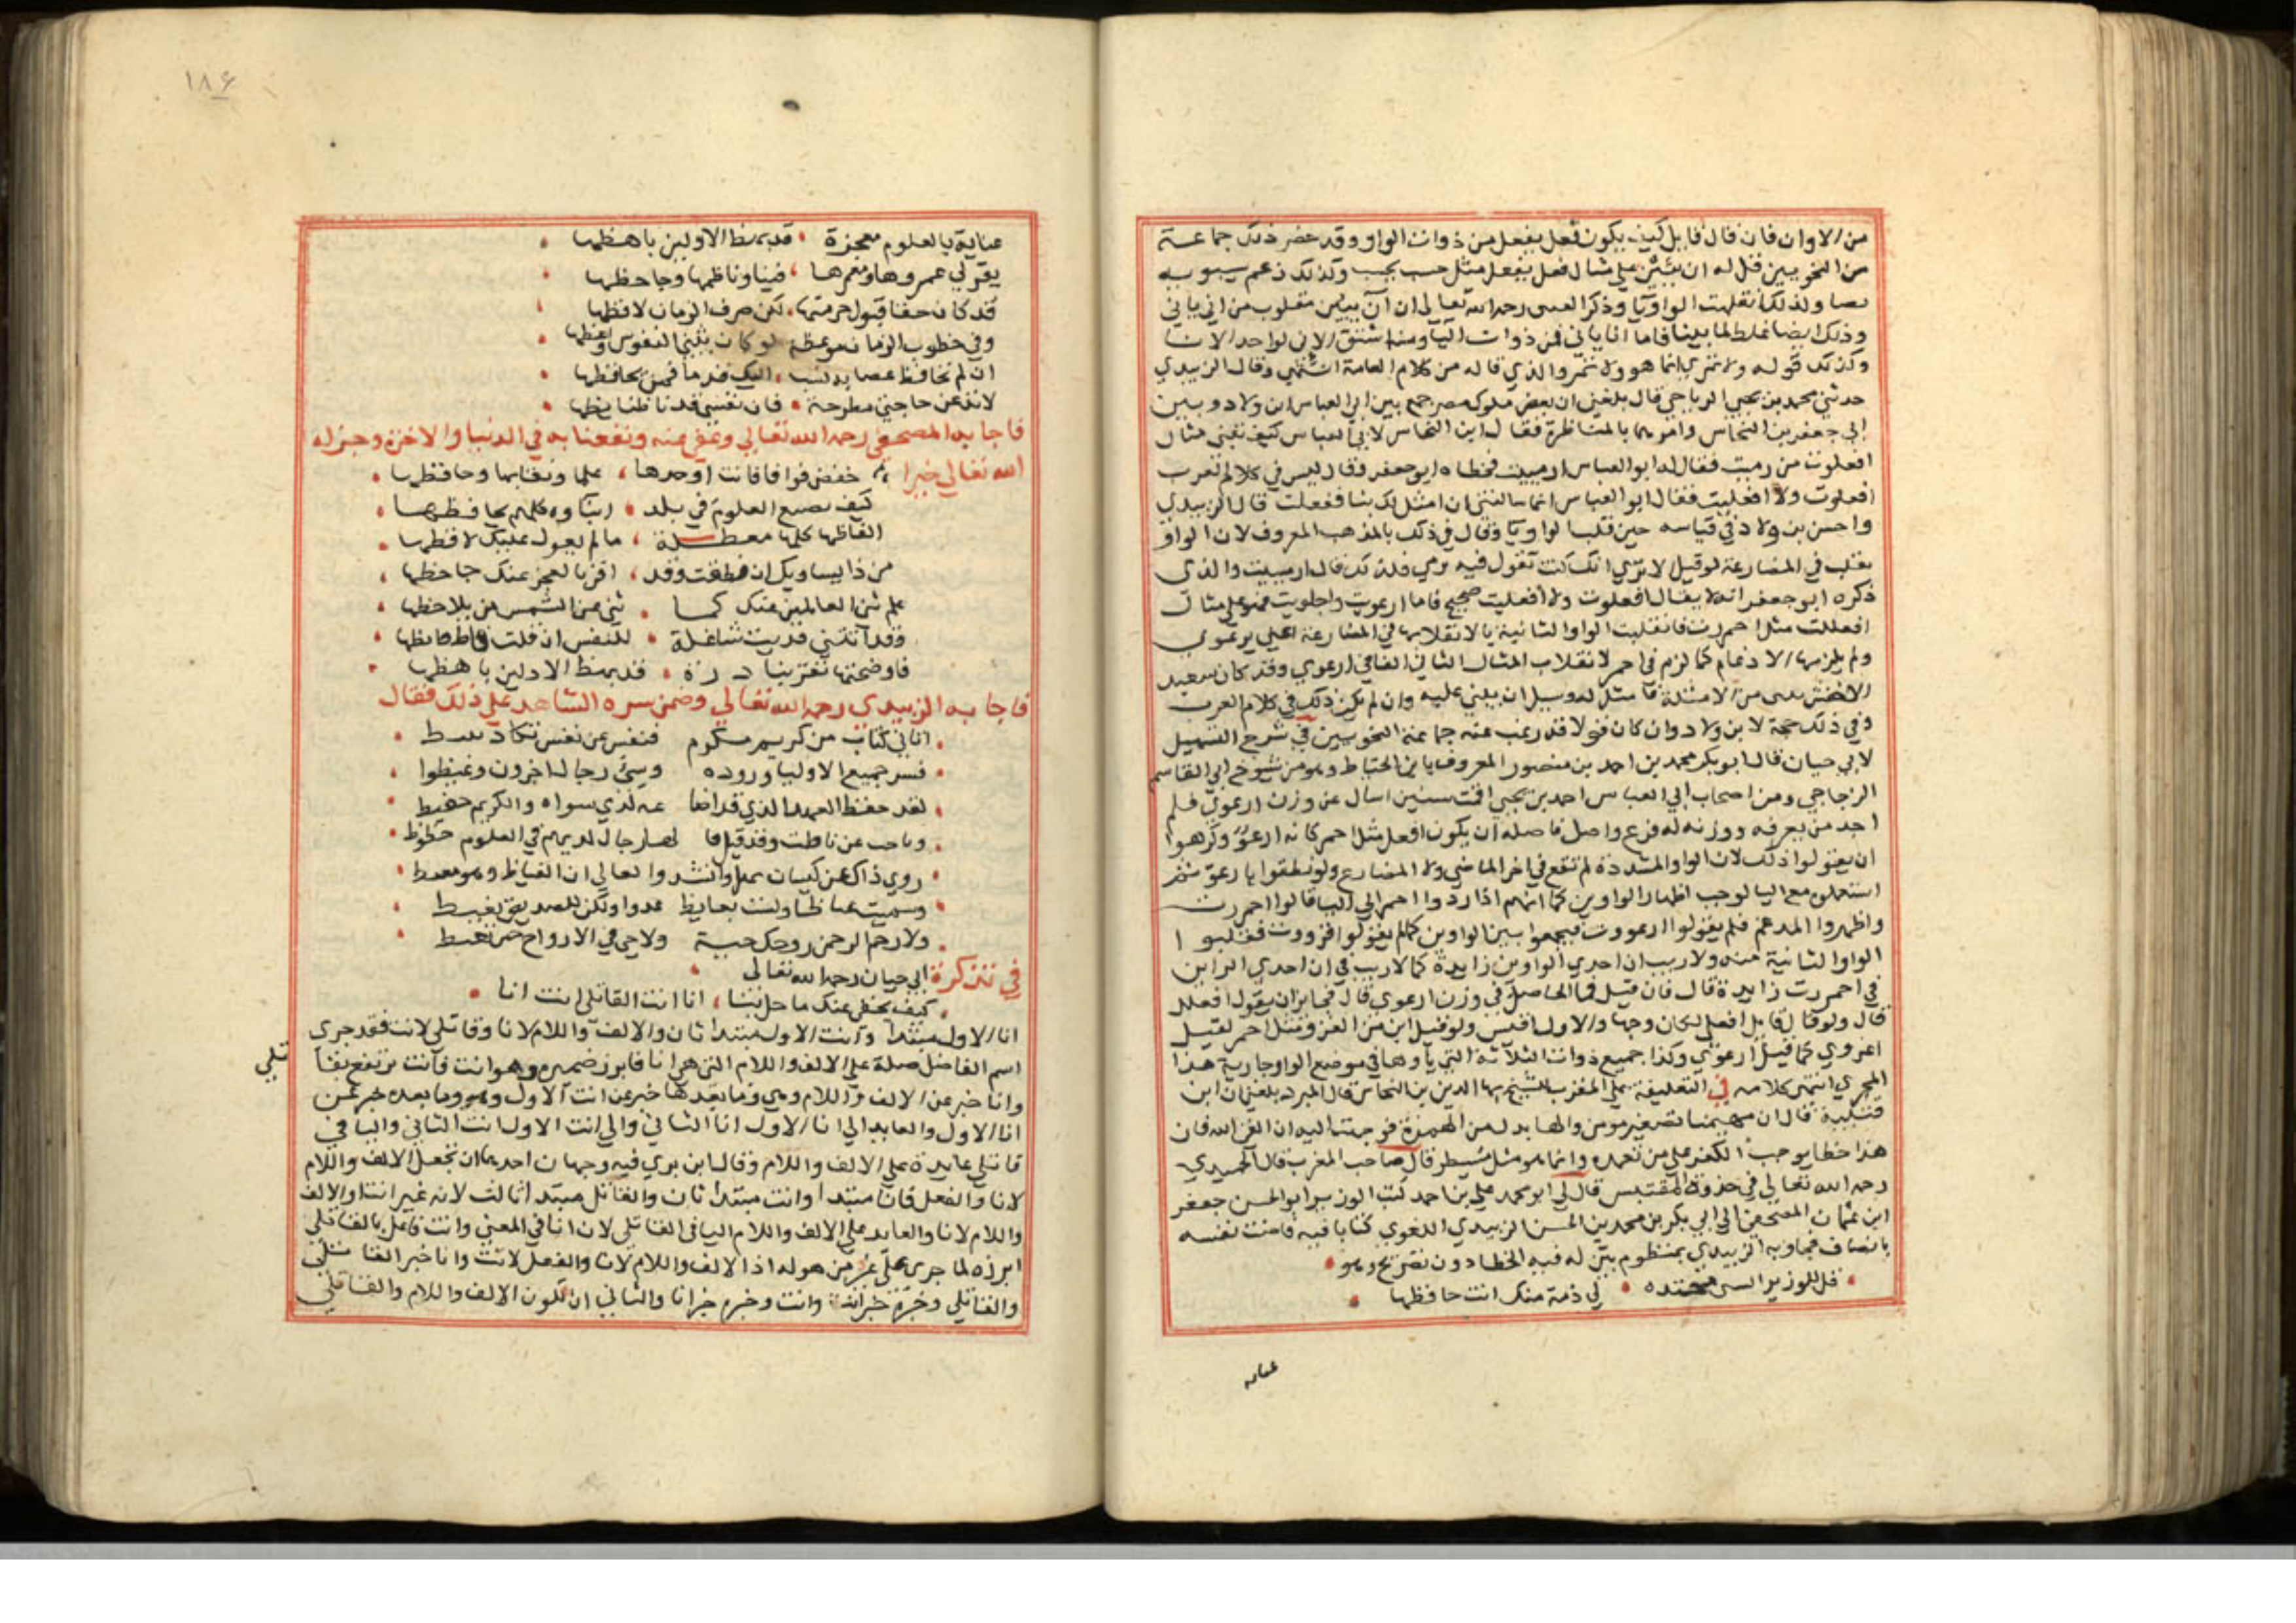 من الاوان فان قال قايل كيف يكون فعل يفعل من ذوات الواو وقد حضر ذلك جماعة
من النحويين قيل له ان يبنى على مثال فعل يفعل مثل حسب يحسب وكذلك زعم سيبويه
ولذلك انقلبت الواو يا وذكر رحمه الله تعالى ان آن يئين مقلوب من اني ياني
وذلك ايضا غلط لما بينا فاما انا ياني فمن ذوات اليا ومنه اشتق الانى لواحد الانا
وكذلك قوله ولا تمري انما هو ولا تمرو الذي قاله من كلام العامة انتهى وقال الزبيدي
حدثني محمد بن يحيى الرباحي قال بلغني ان بعض ملوك مصر جمع بين ابي العباس ابن ولاد وبين
ابي جعفر بن النحاس وامرهما بالمناظرة فقال ابن النحاس لابي العباس كيف تبني مثال
افعلوت من رميت فقال له ابو العباس ارمييت فخطاه ابو جعفر وقال ليس في كلام العرب
افعلوت ولا افعليت فقال ابو العباس انما سالتني ان امثل لك بنا ففعلت قال الزبيدي
واحسن بن ولاد في قياسه حين قلب الواو يا وقال في ذلك بالمذهب المعروف لان الواو
تقلب في المضارعة لو قيل الا ترى انك كنت تقول فيه يرمي فلذلك قال ارمييت والذي
ذكره ابو جعفر انه لا يقال افعلوت ولا افعليت صحيح فاما ارعويت واجلويت فهو على مثال
افعللت مثل احمررت فانقلبت الواو الثانية يا لانقلابها في المضارعة اعني يرعوي
ولم يلزمها الادغام كما لزم في احمر لانقلاب المثال الثاني الفا في ارعوي وقد كان سعيد
الاخفش يبنى من الامثلة ما مثل له وسيل ان يبني عليه وان لم يكن ذلك في كلام العرب
وفي ذلك حجة لابن ولاد وان كان قولا قد رغب عنه جماعة النحويين في شرح التسهيل
لابي حيان قال ابو بكر محمد بن احمد بن منصور المعروف بابن الخياط وهو من شيوخ ابي القاسم
الزجاجي ومن اصحاب ابي العباس احمد بن يحيى اقمت سنين اسال عن وزن ارعوي فلم
اجد من يعرفه ووزنه له فرع واصل فاصله ان يكون افعل مثل احمر كانه ارعوّ وكرهوا
ان يقولوا ذلك لان الواو المشددة لم تقع في اخر الماضي ولا المضارع ولو نطقوا بارعوّ ثم
استعملوه مع اليا لوجب اظهار الواوين كما انهم اذا ردوا احمر الى اليا قالوا احمررت
واظهروا المدغم فلم يقولوا ارعووت فيجمعوا بين الواوين كما لم يقولوا قووت فقلبوا
الواو الثانية منه ولا ريب ان احدى الواوين زايدة كما لا ريب في ان احدي الراين
في احمررت زايدة قال فان قيل فما الحاصل في وزن ارعوي قال فجايز ان يقول افعلل
قال ولو قال قايل افعلى لكان وجها والاول اقيس ولو قيل ابن من الغزو مثل احمر لقيل
اغزوي كما قيل ارعوي وكذا جميع ذوات الثلاثة التي يا وها في موضع الواو جارية هذا
المجري انتهى كلامه في التعليقة على المقرب للشيخ بها الدين بن النحاس قال المبرد بلغني ان ابن
قتيبة قال ان مهيمنا تصغير مومن والها بدل من الهمزة فوجهت اليه ان اتق الله فان
هذا خطا يوجب الكفر على من تعمده وانما هو مثل مسيطر قال صاحب المغرب قال الحميدي
رحمه الله تعالى في جذوة المقتبس قال لي ابو محمد علي بن احمد كتب الوزير ابو الحسن جعفر
ابن عثمان المصحفي الى ابي بكر بن محمد بن الحسن الزبيدي اللغوي كتابا فيه فاضت نفسه
بالضاد فجاوبه الزبيدي بمنظوم بيّن له فيه الخطا دون تصريح وهو
قل للوزير السني محتده لي ذمة منك انت حافظها
عناية
١٨٤
عناية بالعلوم معجزة قد بهظ الاولين باهظها
يقر لي عمروها ومعمرها فيها ونظامها وجاحظها
قد كان حقا قبول حرمتها لكن صرف الزمان لافظها
وفي خطوب الزمان موعظة لو كان يثني النفوس واعظها
ان لم تحافظ عصابة نسبت اليك قدما فمن يحافظها
لا تدعن حاجتي مطرحة فان نفسي قد فاظ فايظها
فاجابه المصحفي رحمه الله تعالى وعفى عنه ونفعنا به في الدنيا والاخرة وجزاه
الله تعالى خيرا خفض فواقا فانت اوحدها علما ونقابها وحافظها
كيف تضيع العلوم في بلد ابناوه كلهم يحافظها
الفاظها كلها معطلة ما لم يعول عليك لافظها
من ذا يساويك ان نطقت وقد اقر بالعجز عنك جاحظها
علم ثنى العالمين عنك كما ثنى عن الشمس من يلاحظها
وقد اتتني فديت شاغلة للنفس ان قلت فاظ فايظها
فاوضحتها تفز بنادرة قد بهظ الاولين باهظها
فاجابه الزبيدي رحمه الله تعالى وضمن سره الشاهد على ذلك فقال
اتاني كتاب من كريم مكرم فنفس عن نفس تكاد تفيظ
فسر جميع الاوليا وروده وسيئ رجال اخرون وغيظوا
لقد حفظ العهد الذي قد اضاعه لدي سواه والكريم حفيظ
وباحث عن فاظت وقد قيل قا لها رجال لديهم في العلوم حظوظ
روي ذاك عن كيسان سهل وانشدوا مقال ابي الغياظ وهو مغيظ
وسميت غياظا ولست بغايظ عدوا ولكن للصديق تغيظ
ولا رحم الرحمن روحك حية ولا هي في الارواح حين تفيظ
في تذكرة ابي حيان رحمه الله تعالى
كيف يخفى عنك ما حل بنا انا انت القاتلي انت انا
انا الاول مبتدا وانت الاول مبتدا ثان والالف واللام لانا وقاتلي لانت فقد جرى
اسم الفاعل صلة على الالف واللام التي هي انا فابرز ضميره وهو انت فانت يرتفع بقا
تلي
وانا خبر عن الالف واللام وهي وما بعدها خبر عن انت الاول وهو وما بعده خبر عن
انا الاول والعايد الى انا الاول انا الثاني والى انت الاول انت الثاني واليا في
قاتلي عايدة على الالف واللام وقال ابن بري فيه وجهان احدهما ان تجعل الالف واللام
لانا والفعل فانا مبتدا وانت مبتدا ثان والقاتل مبتدا ثالث لانه غير انت اوالالف
واللام لانا والعايد على الالف واللام اليا في القاتلي لان انا في المعنى وانت فاعل بالقاتلي
ابرزه لما جرى على غير من هو له اذ الالف واللام لانا والفعل لانت وانا خبر القا تلي
والقاتلي وخبره خبر انت وانت وخبره خبر انا والثاني ان تكون الالف واللام والقاتلي